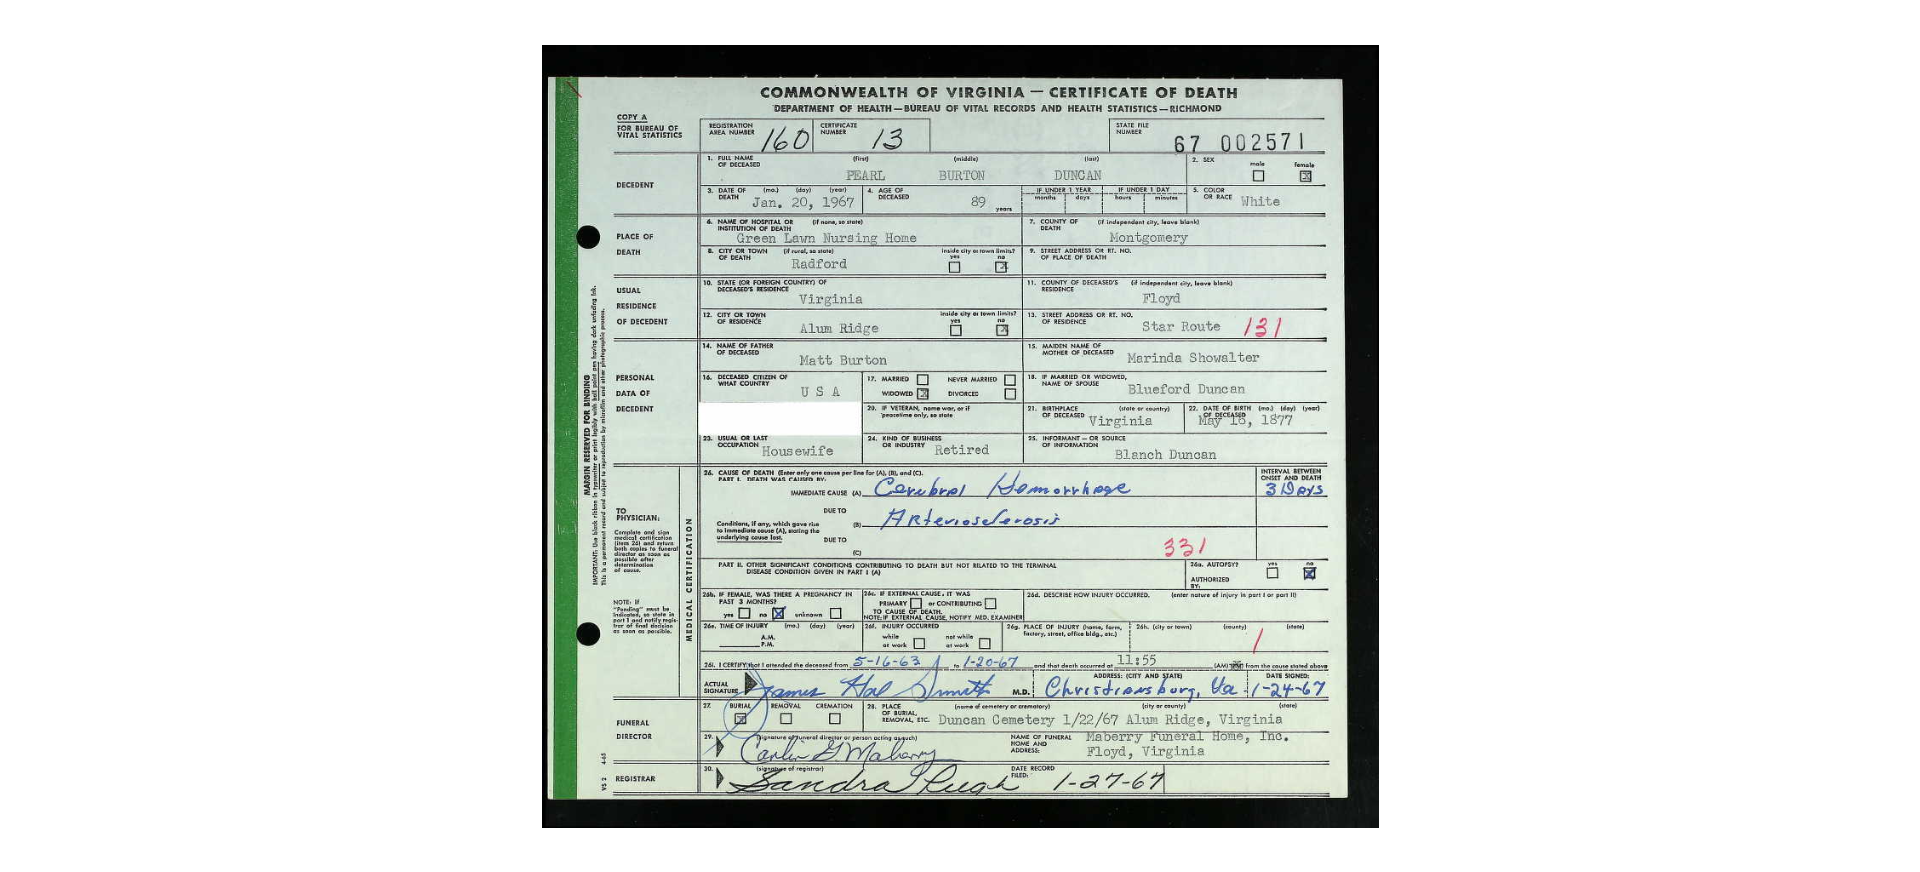 COMMONWEALTH OF VIRGINIA — CERTIFICATE OF DEATH
DEPARTMENT OF HEALTH — BUREAU OF VITAL RECORDS AND HEALTH STATISTICS — RICHMOND
COPY A
FOR BUREAU OF VITAL STATISTICS
REGISTRATION AREA NUMBER 160
CERTIFICATE NUMBER 13
STATE FILE NUMBER 67 002571
DECEDENT
1. FULL NAME OF DECEASED (first) (middle) (last)
PEARL BURTON DUNCAN
2. SEX male female
3. DATE OF DEATH (mo.) (day) (year) Jan. 20, 1967
4. AGE OF DECEASED 89 years
IF UNDER 1 YEAR months days
IF UNDER 1 DAY hours minutes
5. COLOR OR RACE White
PLACE OF DEATH
6. NAME OF HOSPITAL OR INSTITUTION OF DEATH (if none, so state) Green Lawn Nursing Home
7. COUNTY OF DEATH (if independent city, leave blank) Montgomery
8. CITY OR TOWN OF DEATH (if rural, so state) Radford
inside city or town limits? yes no
9. STREET ADDRESS OR RT. NO. OF PLACE OF DEATH
USUAL RESIDENCE OF DECEDENT
10. STATE (OR FOREIGN COUNTRY) OF DECEASED'S RESIDENCE Virginia
11. COUNTY OF DECEASED'S RESIDENCE (if independent city, leave blank) Floyd
12. CITY OR TOWN OF RESIDENCE Alum Ridge
inside city or town limits? yes no
13. STREET ADDRESS OR RT. NO. OF RESIDENCE Star Route 131
PERSONAL DATA OF DECEDENT
14. NAME OF FATHER OF DECEASED Matt Burton
15. MAIDEN NAME OF MOTHER OF DECEASED Marinda Showalter
16. DECEASED CITIZEN OF WHAT COUNTRY U S A
17. MARRIED NEVER MARRIED WIDOWED DIVORCED
18. IF MARRIED OR WIDOWED, NAME OF SPOUSE Blueford Duncan
20. IF VETERAN, name war, or if peacetime only, so state
21. BIRTHPLACE OF DECEASED (state or country) Virginia
22. DATE OF BIRTH OF DECEASED (mo.) (day) (year) May 18, 1877
23. USUAL OR LAST OCCUPATION Housewife
24. KIND OF BUSINESS OR INDUSTRY Retired
25. INFORMANT — OR SOURCE OF INFORMATION Blanch Duncan
MARGIN RESERVED FOR BINDING
MEDICAL CERTIFICATION
TO PHYSICIAN:
Complete and sign medical certification (item 26) and return both copies to funeral director as soon as possible after determination of cause.
NOTE: If "Pending" must be indicated, so state in part I and notify registrar of final decision as soon as possible.
26. CAUSE OF DEATH (Enter only one cause per line for (A), (B), and (C).
PART I. DEATH WAS CAUSED BY:
INTERVAL BETWEEN ONSET AND DEATH
IMMEDIATE CAUSE (A) Cerebral Hemorrhage 3 Days
DUE TO
Conditions, if any, which gave rise to immediate cause (A), stating the underlying cause last.
(B) Arteriosclerosis
DUE TO
(C)
331
PART II. OTHER SIGNIFICANT CONDITIONS CONTRIBUTING TO DEATH BUT NOT RELATED TO THE TERMINAL DISEASE CONDITION GIVEN IN PART I (A)
26a. AUTOPSY? yes no
AUTHORIZED BY:
26b. IF FEMALE, WAS THERE A PREGNANCY IN PAST 3 MONTHS? yes no unknown
26c. IF EXTERNAL CAUSE, IT WAS PRIMARY or CONTRIBUTING TO CAUSE OF DEATH.
NOTE: IF EXTERNAL CAUSE, NOTIFY MED. EXAMINER
26d. DESCRIBE HOW INJURY OCCURRED. (enter nature of injury in part I or part II)
26e. TIME OF INJURY (mo.) (day) (year) A.M. P.M.
26f. INJURY OCCURRED while at work not while at work
26g. PLACE OF INJURY (home, farm, factory, street, office bldg., etc.)
26h. (city or town) (county) (state)
26i. I CERTIFY that I attended the deceased from 5-16-63 to 1-20-67 and that death occurred at 11:55 (AM) from the cause stated above
ACTUAL SIGNATURE James Hal Smith M.D.
ADDRESS: (CITY AND STATE) Christiansburg, Va
DATE SIGNED: 1-24-67
FUNERAL DIRECTOR
27. BURIAL REMOVAL CREMATION
28. PLACE OF BURIAL, REMOVAL, ETC. (name of cemetery or crematory) (city or county) (state)
Duncan Cemetery 1/22/67 Alum Ridge, Virginia
29. (signature of funeral director or person acting as such) Carlin G. Maberry
NAME OF FUNERAL HOME AND ADDRESS: Maberry Funeral Home, Inc.
Floyd, Virginia
REGISTRAR
30. (signature of registrar) Sandra Pugh
DATE RECORD FILED: 1-27-67
VS 2